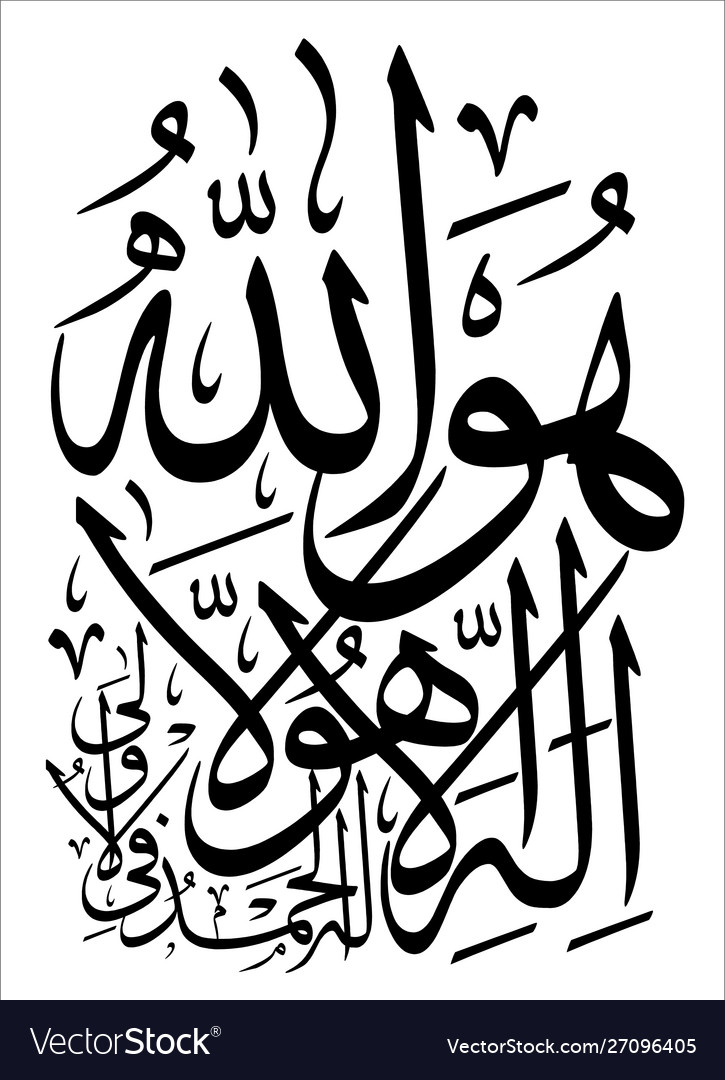 هُوَ اللّٰهُ
لَا إِلٰهَ إِلَّا هُوَ
لَهُ الْحَمْدُ فِي الْأُولَى
VectorStock®
VectorStock.com/27096405